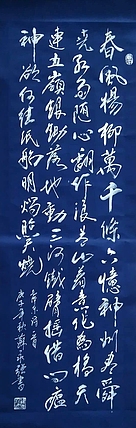 春風楊柳萬千條六億神州盡舜
堯紅雨隨心翻作浪青山着意化為橋天
連五嶺銀鋤落地動三河鐵臂搖借問瘟
神欲何往紙船明燭照天燒
年秋
書